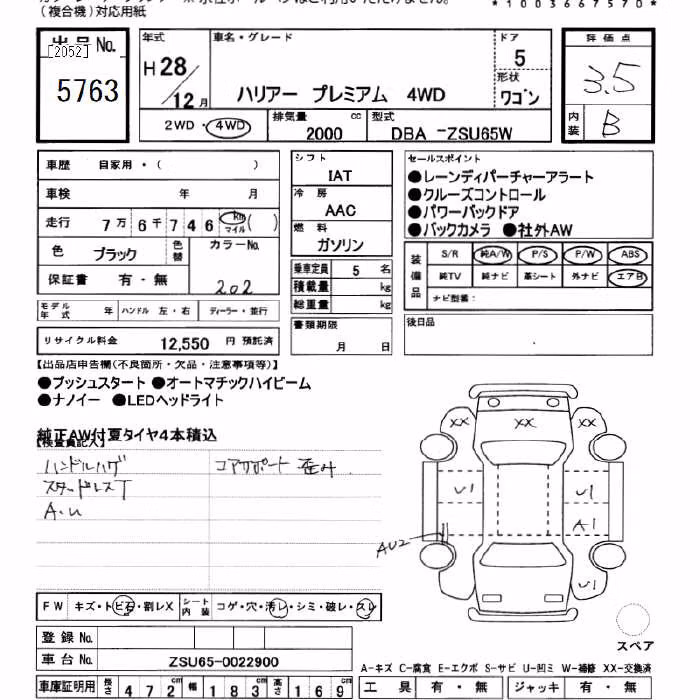 (複合機)対応用紙
*1003667570*
出品No.
[2052]
5763
年式
H28/12月
車名・グレード
ハリアー プレミアム 4WD
ドア
5
形状
ワゴン
評価点
3.5
内装
B
2WD・4WD
排気量
2000 cc
型式
DBA -ZSU65W
車歴 自家用・( )
車検 年 月
走行 7万6千746 km マイル ( )
色 ブラック 色替 カラーNo. 202
保証書 有・無
モデル年式 年 ハンドル 左・右 ディーラー・並行
リサイクル料金 12,550 円 預託済
シフト
IAT
冷房
AAC
燃料
ガソリン
乗車定員 5 名
積載量 kg
総重量 kg
書類期限
月 日
セールスポイント
●レーンディパーチャーアラート
●クルーズコントロール
●パワーバックドア
●バックカメラ ●社外AW
装備品
S/R 純A/W P/S P/W ABS
純TV 純ナビ 革シート 外ナビ エアB
ナビ型番:
後日品
【出品店申告欄(不良箇所・欠品・注意事項等)】
●プッシュスタート ●オートマチックハイビーム
●ナノイー ●LEDヘッドライト
純正AW付夏タイヤ4本積込
【検査員記入】
ハンドルハゲ
スタッドレスT
A.U
コアサポート 歪み
XX XX XX
U1 U1
A1
AU2
U1
FW キズ・トビ石・割レX シート内装 コゲ・穴・汚レ・シミ・破レ・スレ
登録No.
車台No. ZSU65-0022900
車庫証明用 長さ 472cm 幅 183cm 高さ 169cm
スペア
A-キズ C-腐食 E-エクボ S-サビ U-凹ミ W-補修 XX-交換済
工具 有・無 ジャッキ 有・無